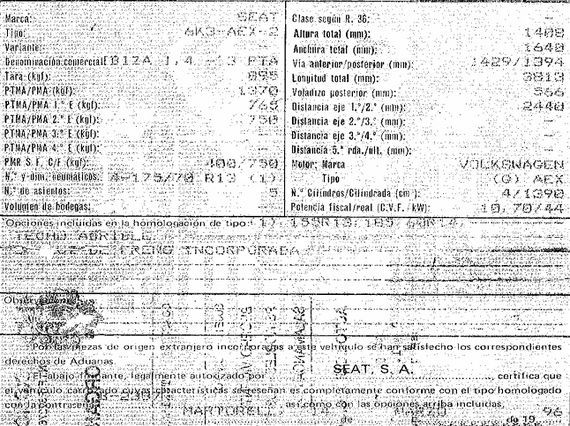 Marca: SEAT
Tipo: 6K3-AEX-2
Variante: -
Denominación comercial: IBIZA 1,4 -13 PTA
Tara (kgf): 895
PTMA/PMA (kgf): 1370
PTMA/PMA 1.º E (kgf): 765
PTMA/PMA 2.º E (kgf): 750
PTMA/PMA 3.º E (kgf): -
PTMA/PMA 4.º E (kgf): -
PMR S.F. C/F (kgf): 400/750
N.º y dim. neumáticos: 4-175/70 R13 (1)
N.º de asientos: 5
Volumen de bodegas: -
Clase según R. 36: -
Altura total (mm): 1408
Anchura total (mm): 1640
Vía anterior/posterior (mm): 1429/1394
Longitud total (mm): 3813
Voladizo posterior (mm): 566
Distancia eje 1.º/2.º (mm): 2440
Distancia eje 2.º/3.º (mm): -
Distancia eje 3.º/4.º (mm): -
Distancia 5.ª rda./ult. (mm): -
Motor: Marca VOLKSWAGEN
Tipo (G) AEX
N.º Cilindros/Cilindrada (cm³): 4/1390
Potencia fiscal/real (C.V.F./kW): 10,70/44
Opciones incluidas en la homologación de tipo: 1) 155R13;185/60R14.
TECHO ABRIBLE.
DE FRENO INCORPORADA
Observaciones:
Por las piezas de origen extranjero incorporadas a este vehículo se han satisfecho los correspondientes
derechos de Aduanas.
El abajo firmante, legalmente autorizado por SEAT, S. A. certifica que
el vehículo carrozado cuyas características se reseñan es completamente conforme con el tipo homologado
con la contraseña así como con las opciones arriba incluidas.
MARTORELL, 14 de MARZO de 19 96